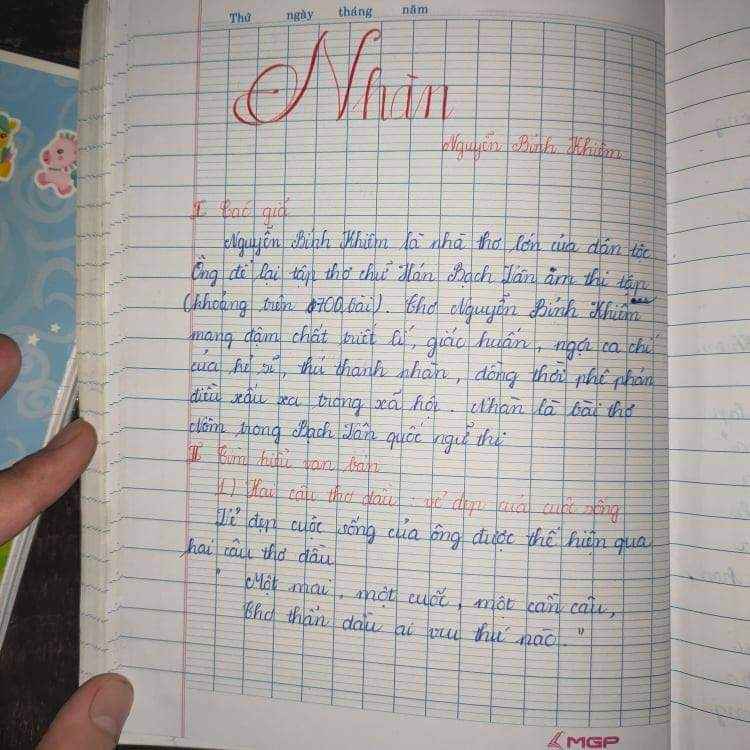 Thứ ngày tháng năm
Nhàn
Nguyễn Bỉnh Khiêm
I. Tác giả
Nguyễn Bỉnh Khiêm là nhà thơ lớn của dân tộc
Ông để lại tập thơ chữ Hán Bạch Vân âm thi tập
(khoảng trên 700 bài). Thơ Nguyễn Bỉnh Khiêm
mang đậm chất triết lí, giáo huấn, ngợi ca chí
của kẻ sĩ, thú thanh nhàn, đồng thời phê phán
điều xấu xa trong xã hội. Nhàn là bài thơ
Nôm trong Bạch Vân quốc ngữ thi
II. Tìm hiểu văn bản
1) Hai câu thơ đầu: vẻ đẹp của cuộc sống
Vẻ đẹp cuộc sống của ông được thể hiện qua
hai câu thơ đầu
"Một mai, một cuốc, một cần câu,
Thơ thẩn dầu ai vui thú nào."
MGP